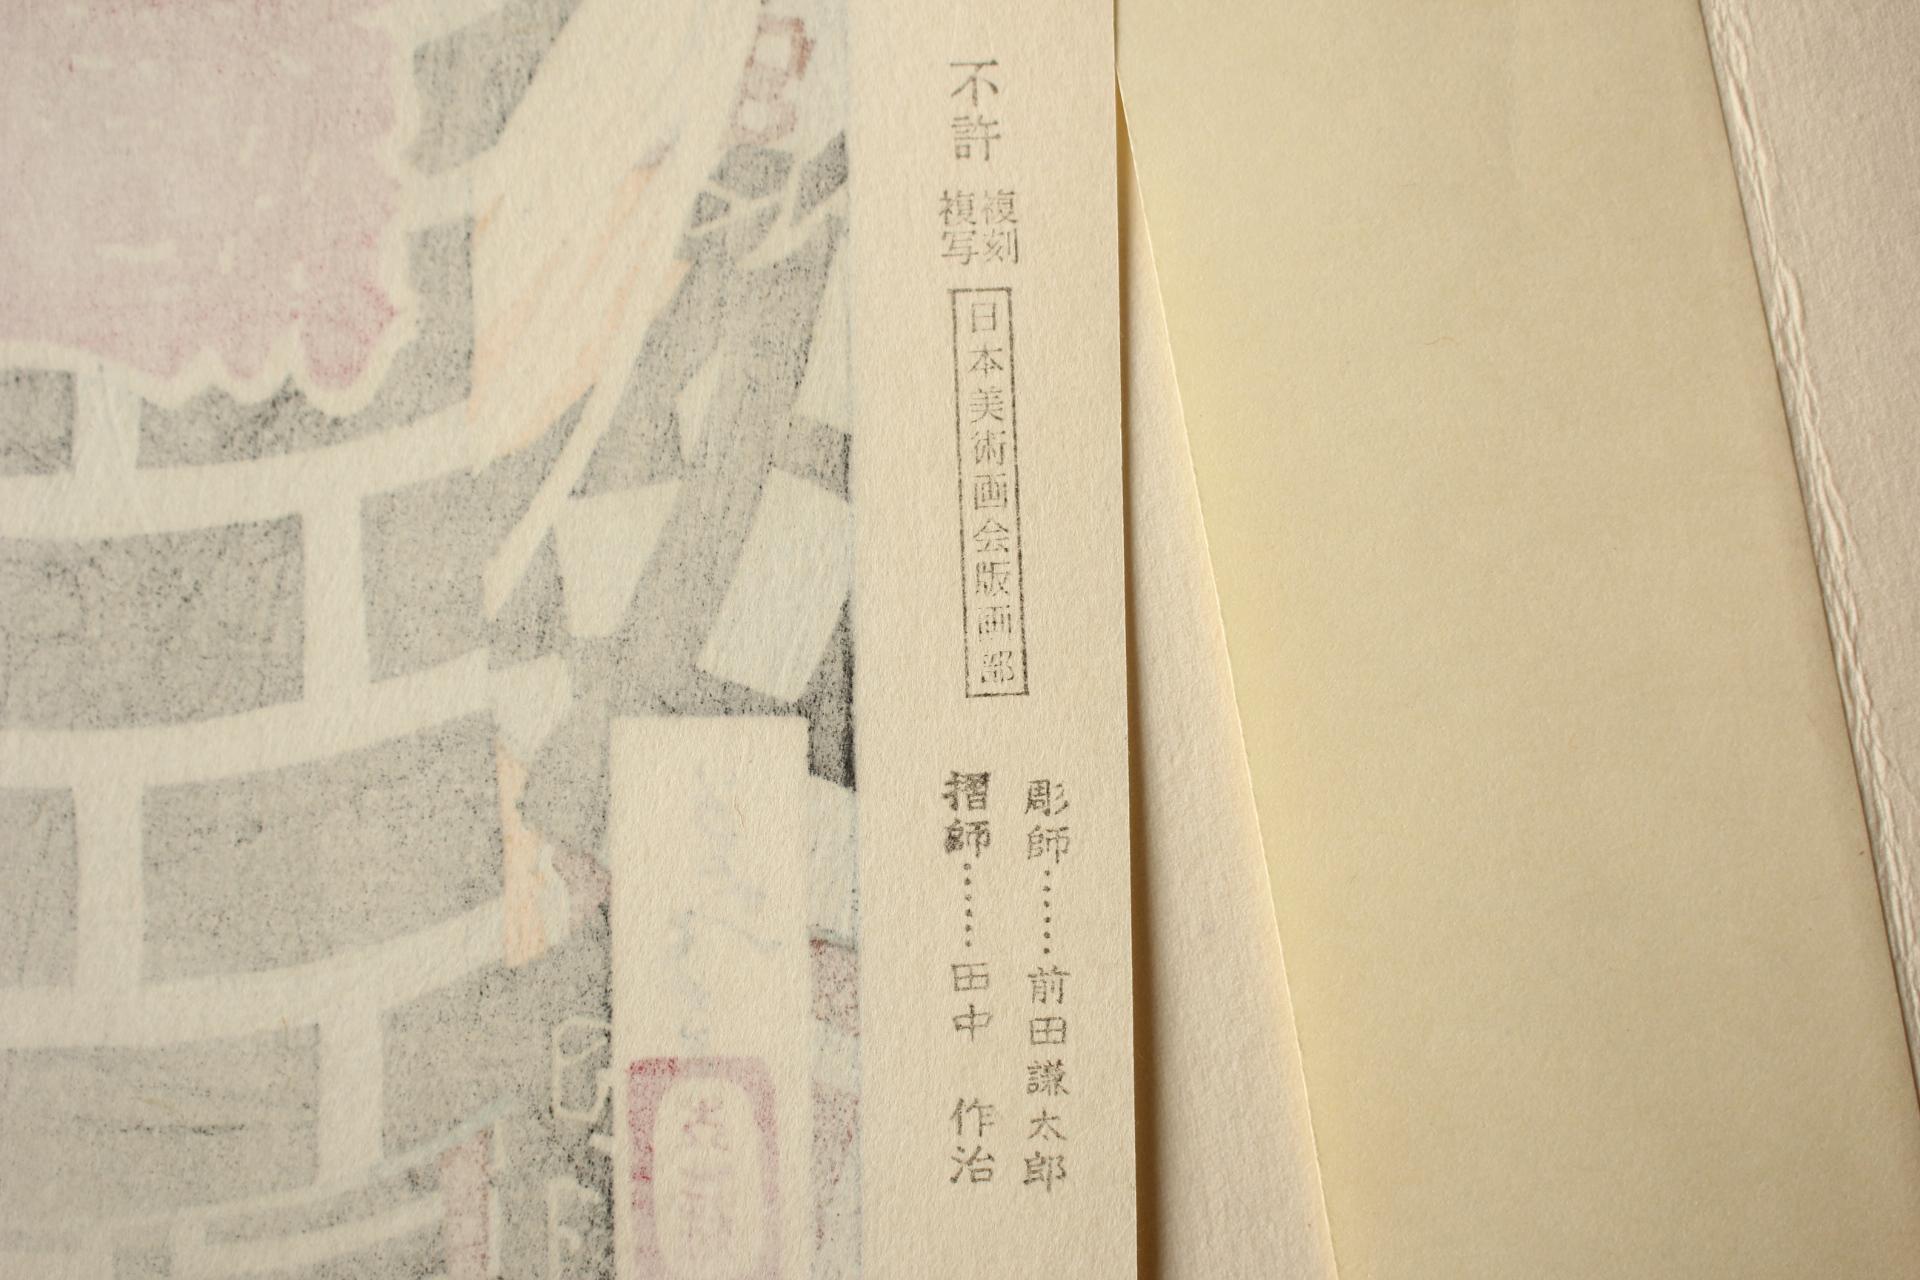 不許 複刻
複写
日本美術画会版画部
彫師……前田謙太郎
摺師……田中 作治